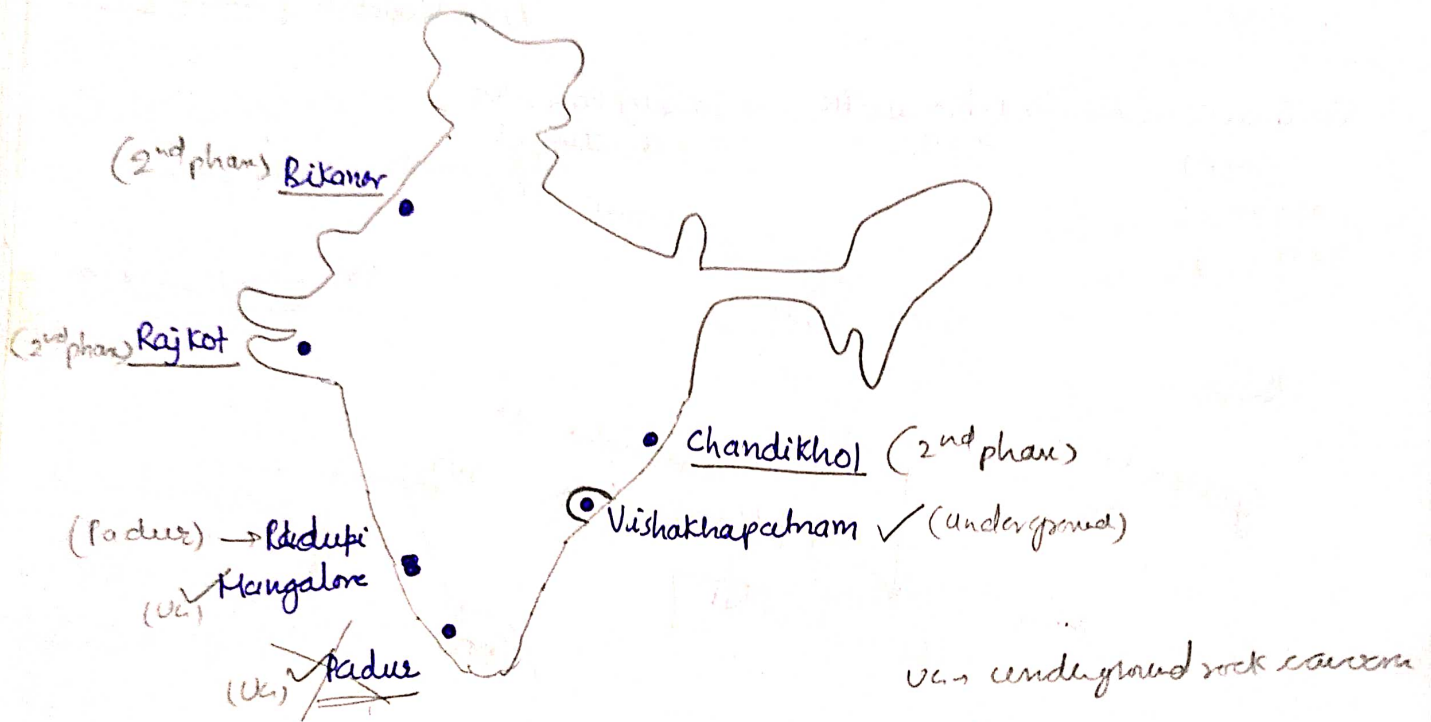 (2nd phase) Bikaner
(2nd phase) Rajkot
Chandikhol (2nd phase)
Vishakhapatnam ✓ (underground)
(Padur) →
Mangalore
(UG) ✓
(UG) ✓ Padur
UG → underground rock cavern